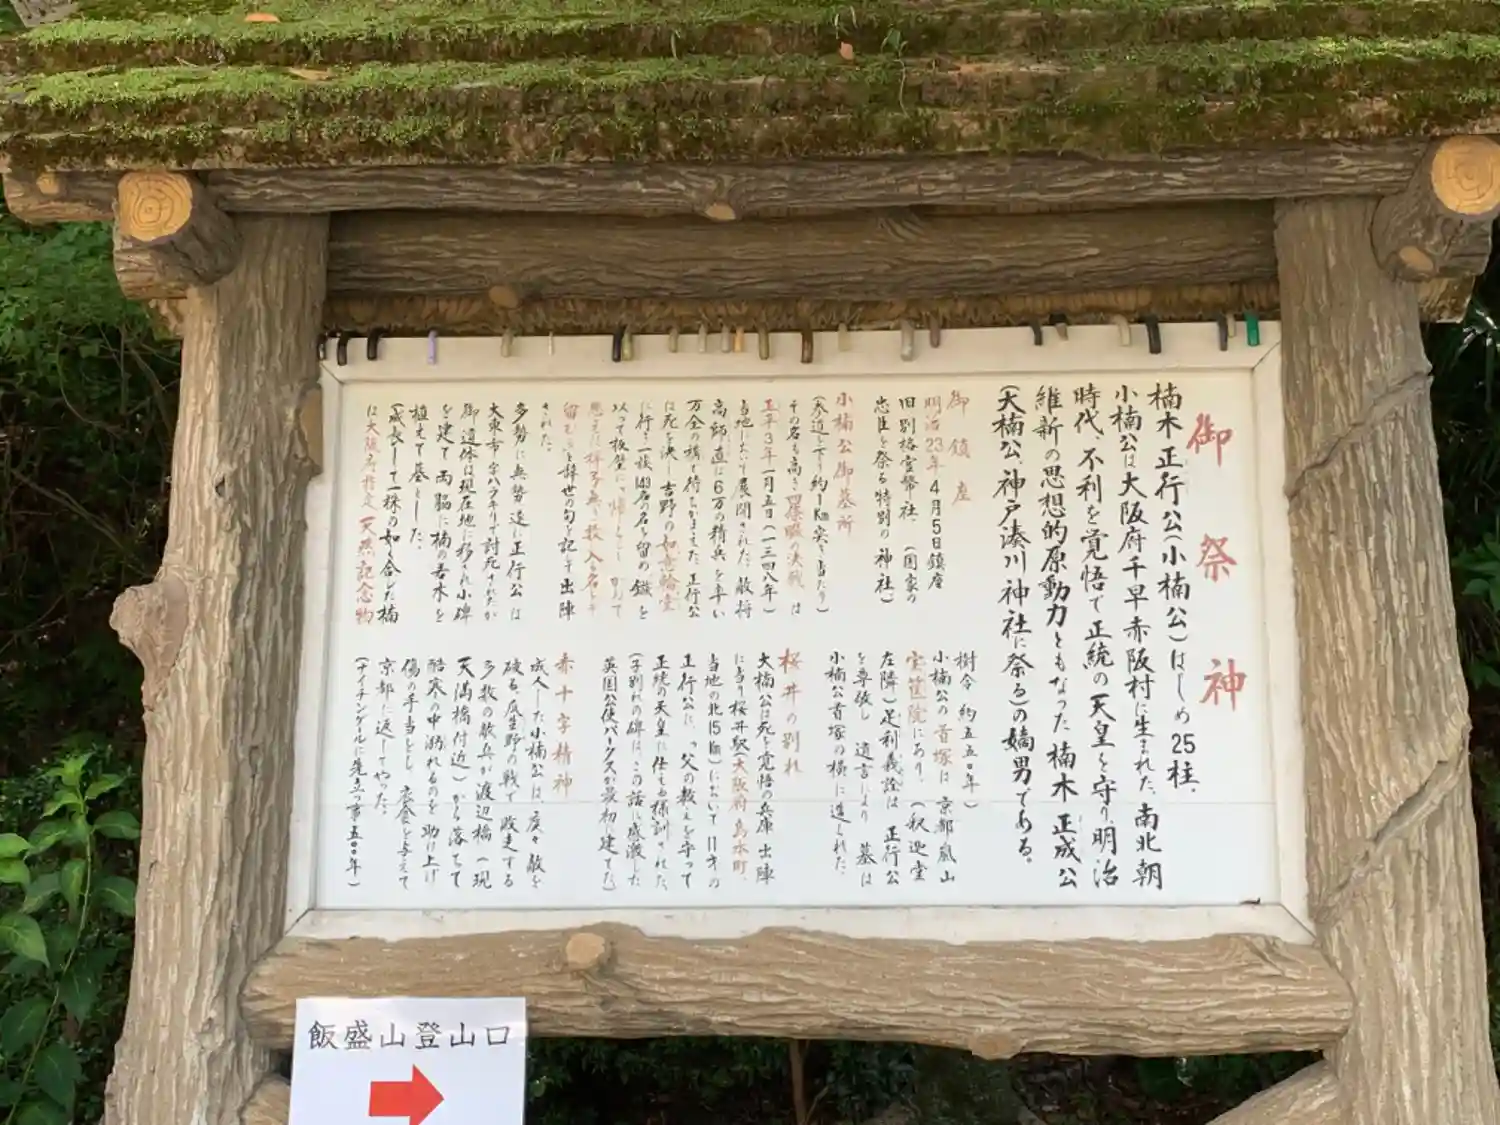 御祭神
楠木正行公(小楠公)はじめ25柱、
小楠公は大阪府千早赤阪村に生まれた、南北朝
時代、不利を覚悟で正統の天皇を守り、明治
維新の思想的原動力ともなった楠木正成公
(大楠公、神戸湊川神社に祭る)の嫡男である。
御鎮座
明治23年4月5日鎮座
旧別格官幣社、(国家の
忠臣を祭る特別の神社)
小楠公御墓所
(参道を下り約1Km突き当たり)
その名も高き四條畷の決戦は
正平3年一月五日(一三四八年)
当地において展開された、敵将
高師直は6万の精兵を率い
万全の構で待ちかまえた、正行公
は死を決し吉野の如意輪堂
に行き一族143名の名を留め鏃を
以って板壁に「帰らじとかねて
思えば梓弓無き数に入る名をぞ
留むる」と辞世の句を記して出陣
された。
多勢に無勢遂に正行公は
大東市字ハラキリで討死されたが
御遺体は現在地に移され小碑
を建て両脇に楠の若木を
植えて墓とした。
(成長して一株の如く合した楠
は大阪府指定天然記念物
樹令約五五〇年)
小楠公の首塚は京都嵐山
宝筐院にあり、(釈迦堂
左隣)足利義詮は正行公
を尊敬し遺言により墓は
小楠公首塚の横に造られた。
桜井の別れ
大楠公は死を覚悟の兵庫出陣
に当り桜井駅(大阪府島本町、
当地の北15Km)において11才の
正行公に、「父の教えを守って
正統の天皇に仕える様訓された、
(子別れの碑は、この話に感激した
英国公使パークスが最初に建てた)
赤十字精神
成人した小楠公は、度々敵を
破る、瓜生野の戦で敗走する
多数の敵兵が渡辺橋(現
天満橋付近)から落ちて
酷寒の中溺れるのを助け上げ
傷の手当をし、衣食を与えて
京都に返してやった。
(ナイチンゲールに先立つ事五〇〇年)
飯盛山登山口